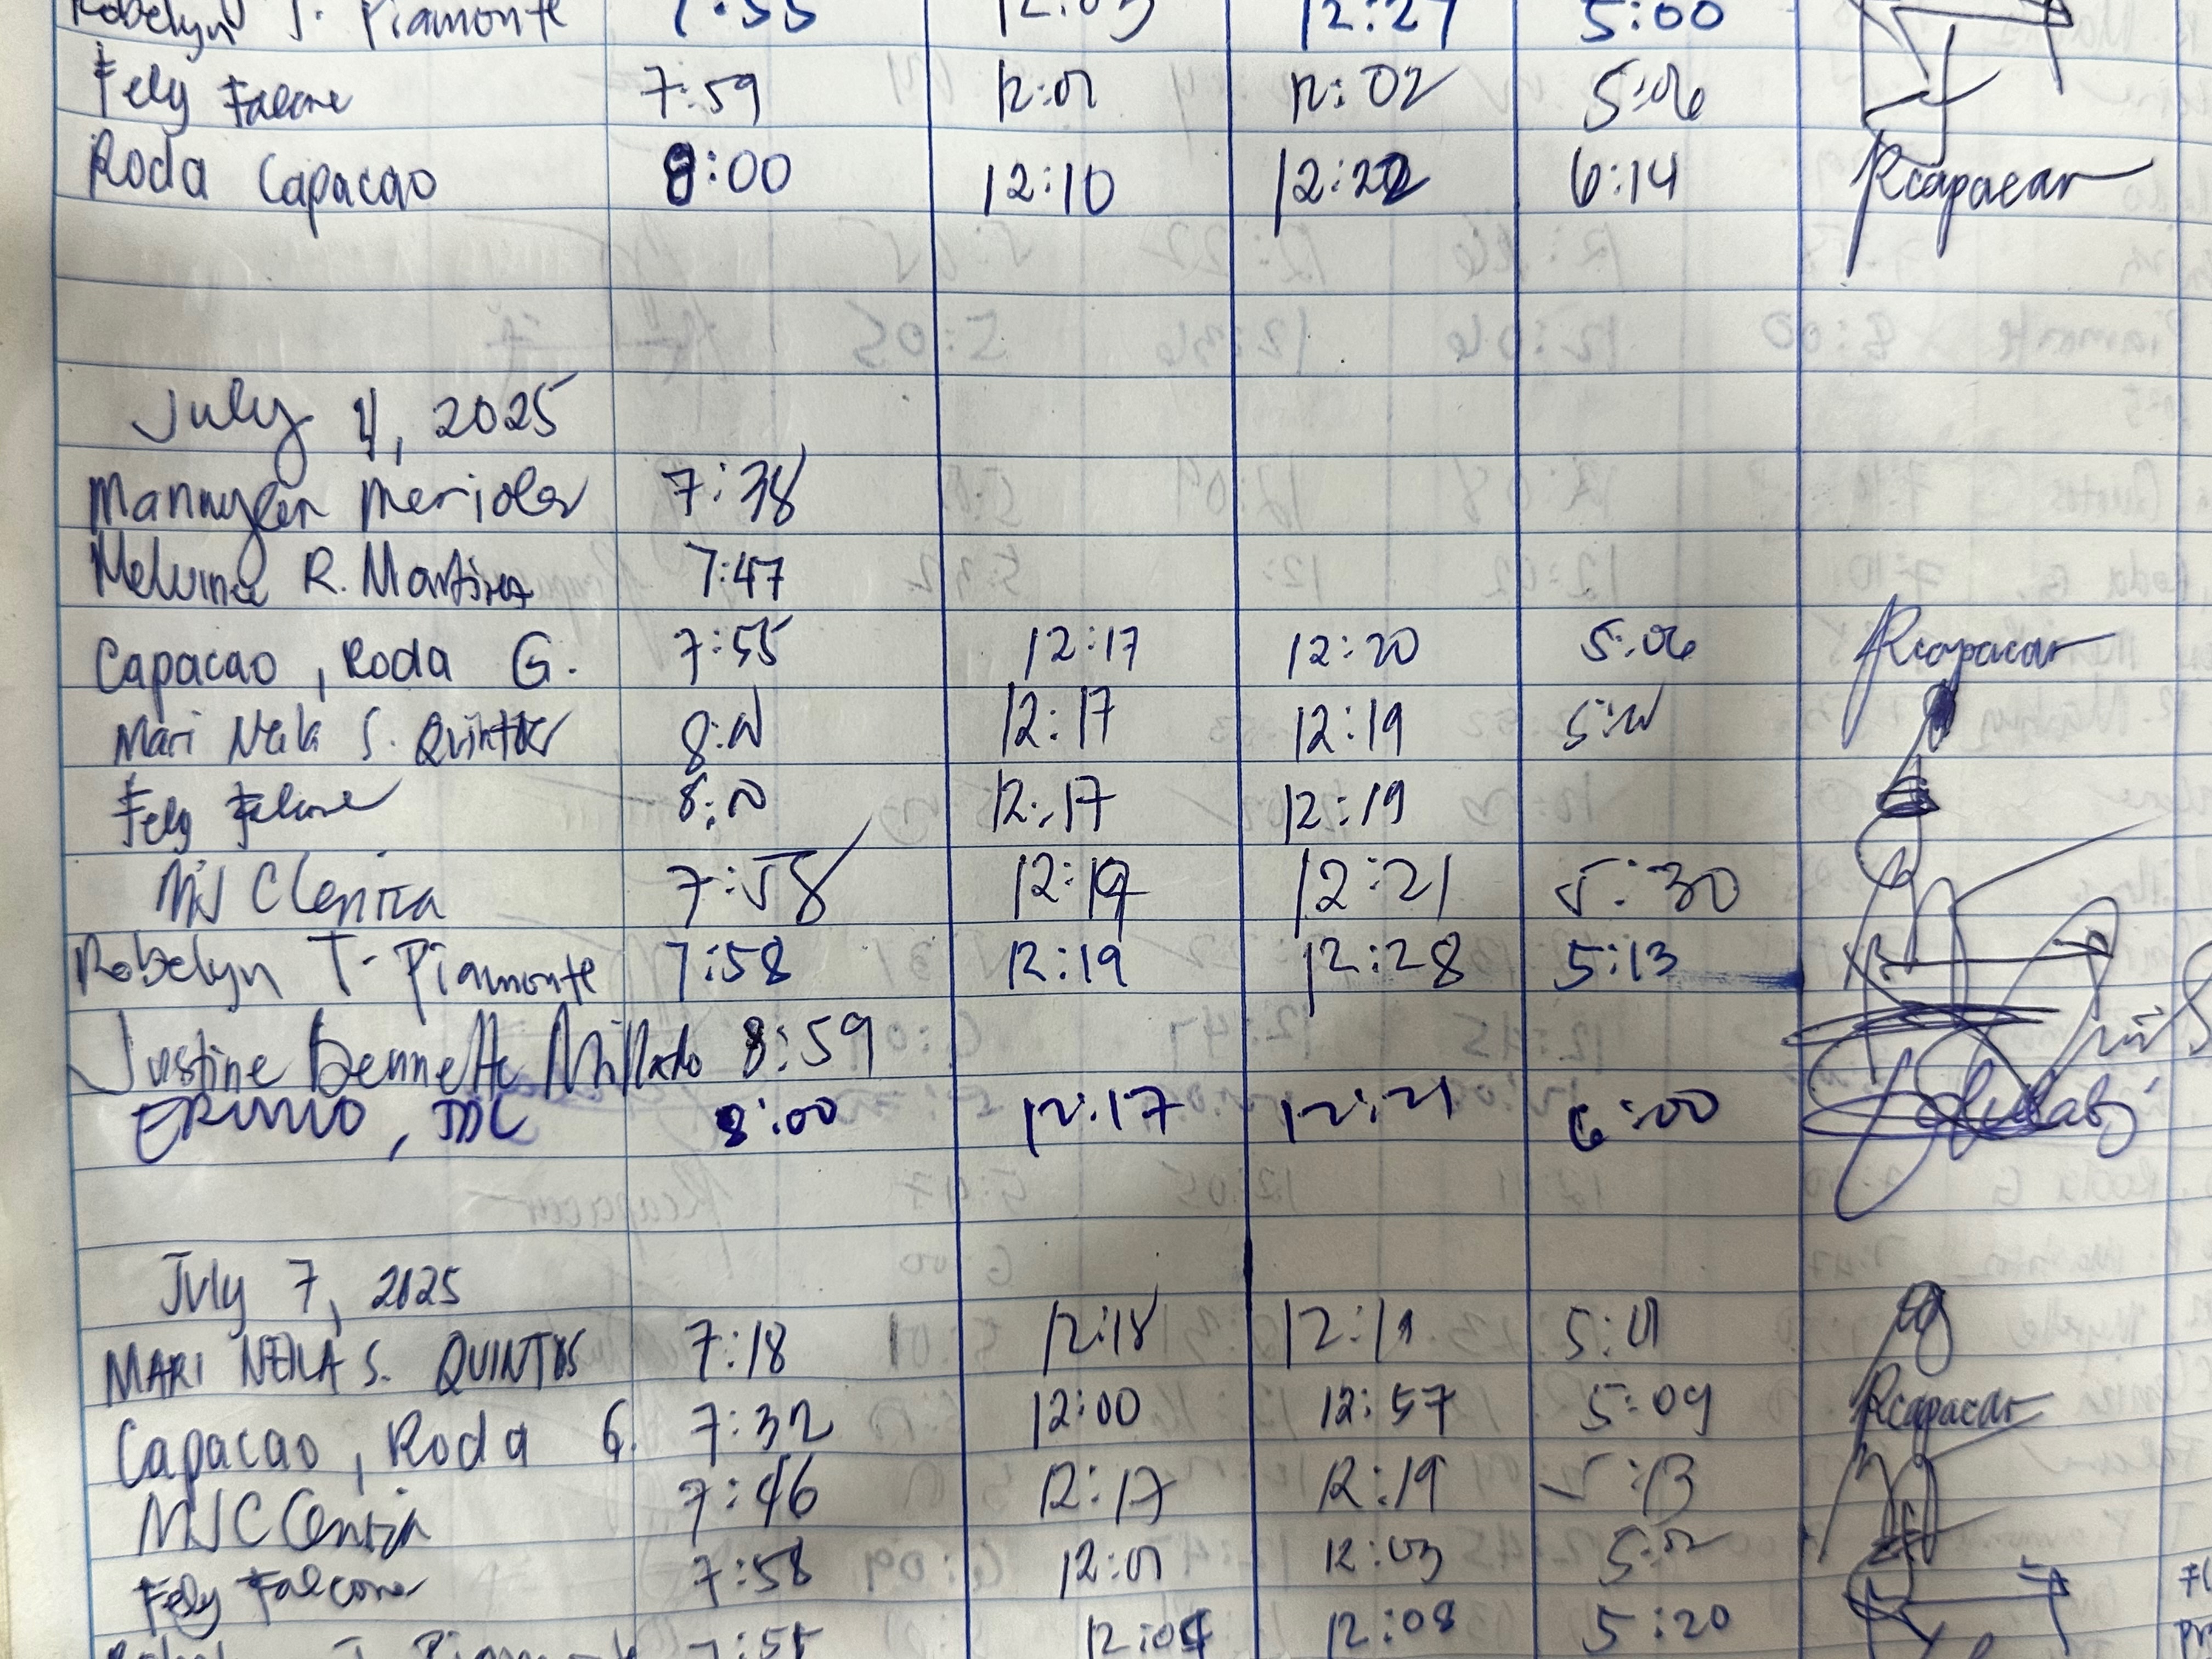 Robelyn T. Piamonte 7:55 12:03 12:27 5:00
Fely Falcone 7:59 12:01 12:02 5:06
Roda Capacao 8:00 12:10 12:22 6:14 Rcapacao
July 4, 2025
Mannylen Merioles 7:38
Melvina R. Martinez 7:47
Capacao, Roda G. 7:55 12:17 12:20 5:06 Rcapacao
Mari Neila S. Quintos 12:17 12:19
Fely Falcone 12:17 12:19
MJ Clenica 7:58 12:19 12:21 5:30
Robelyn T. Piamonte 7:58 12:19 12:28 5:13
Justine Bennette Millado 8:59
JDC 8:00 12:17 12:21 6:00
July 7, 2025
MARI NEILA S. QUINTOS 7:18 12:18 12:19 5:01
Capacao, Roda G. 7:32 12:00 12:57 5:09 Rcapacao
7:46 12:17 12:19 5:13
Fely Falcone 7:58 12:01 12:03 5:02
Robelyn T. Piamonte 7:55 12:04 12:08 5:20